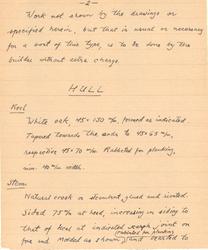 - 2 -
Work not shown by the drawings or
specified herein, but that is usual or necessary
for a boat of this type, is to be done by the
builder without extra charge.
HULL
Keel
White oak, 45 x 130 m/m, formed as indicated.
Tapered towards the ends to 45 x 65 m/m,
respective 45 x 70 m/m. Rabbeted for planking,
min. 40 m/m width.
Stem
Natural crook or steambent, glued and riveted.
Sided 75 m/m at head, increasing in siding to
that of keel at indicated scarph joint on
(rabbeted for planking)
fore end. Molded as shown, and